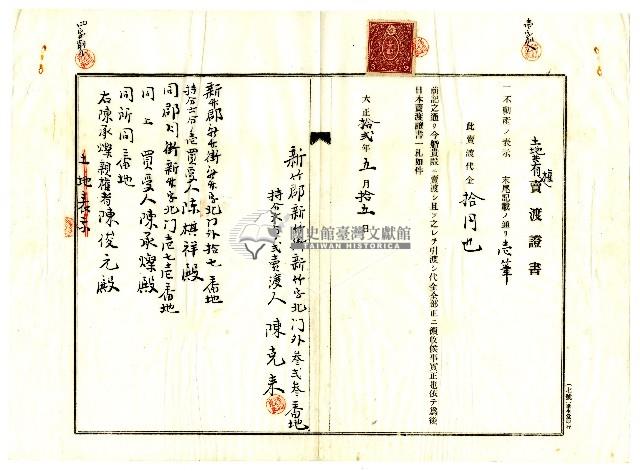 土地共有権 賣渡證書
一不動産ノ表示 末尾記載ノ通リ 壱筆
此賣渡代金 拾円也
前記之通リ今般貴殿ニ賣渡シ且ツ之レヲ引渡シ代金全部正ニ領收候事實正也依テ為後
日本賣渡證書一札如件
大正拾弐年五月拾五日
新竹郡新竹街新竹字北门外参弐参番地
賣渡人 陳克来
新竹郡新竹街新竹字北门外拾七番地
買受人 陳棋祥殿
同郡同街新竹字北门外壱七壱番地
同上 買受人 陳承燦殿
同所同番地
右陳承燦親権者陳俊元殿
土地表示
國史館臺灣文獻館
TAIWAN HISTORICA